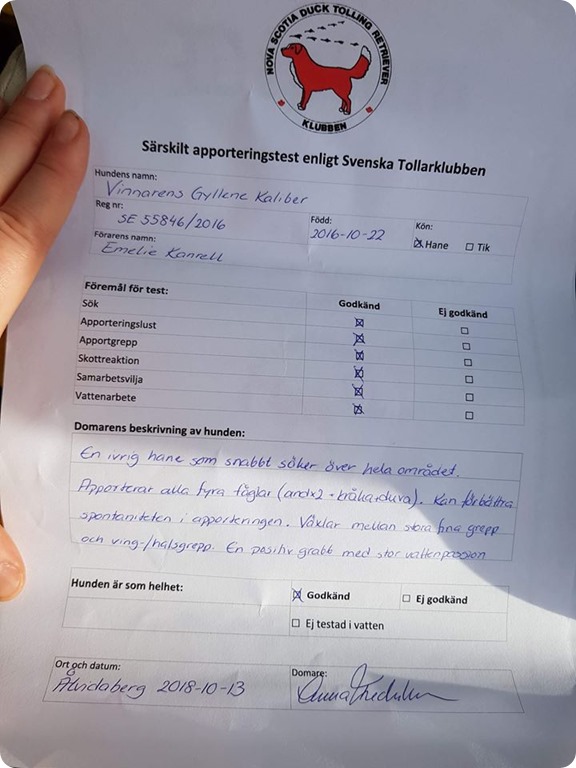 NOVA SCOTIA DUCK TOLLING RETRIEVER
KLUBBEN
Särskilt apporteringstest enligt Svenska Tollarklubben
Hundens namn:
Vinnarens Gyllene Kaliber
Reg nr: Född: Kön:
SE 55846/2016 2016-10-22 Hane Tik
Förarens namn:
Emelie Kanrell
Föremål för test: Godkänd Ej godkänd
Sök
Apporteringslust
Apportgrepp
Skottreaktion
Samarbetsvilja
Vattenarbete
Domarens beskrivning av hunden:
En ivrig hane som snabbt söker över hela området.
Apporterar alla fyra fåglar (andx2 + kråka+duva). Kan förbättra
spontaniteten i apporteringen. Växlar mellan stora fina grepp
och ving-/halsgrepp. En positiv grabb med stor vattenpassion
Hunden är som helhet: Godkänd Ej godkänd
Ej testad i vatten
Ort och datum: Domare:
Åtvidaberg 2018-10-13 Anna